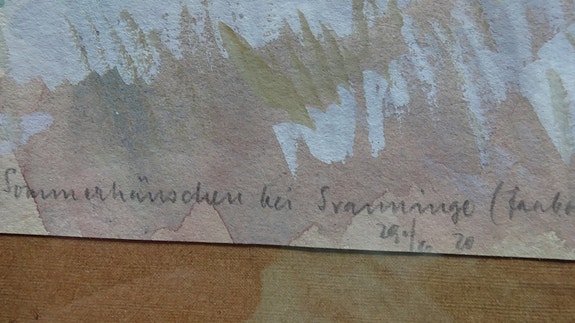 Sommerhäuschen bei Svanninge (Faabo
20